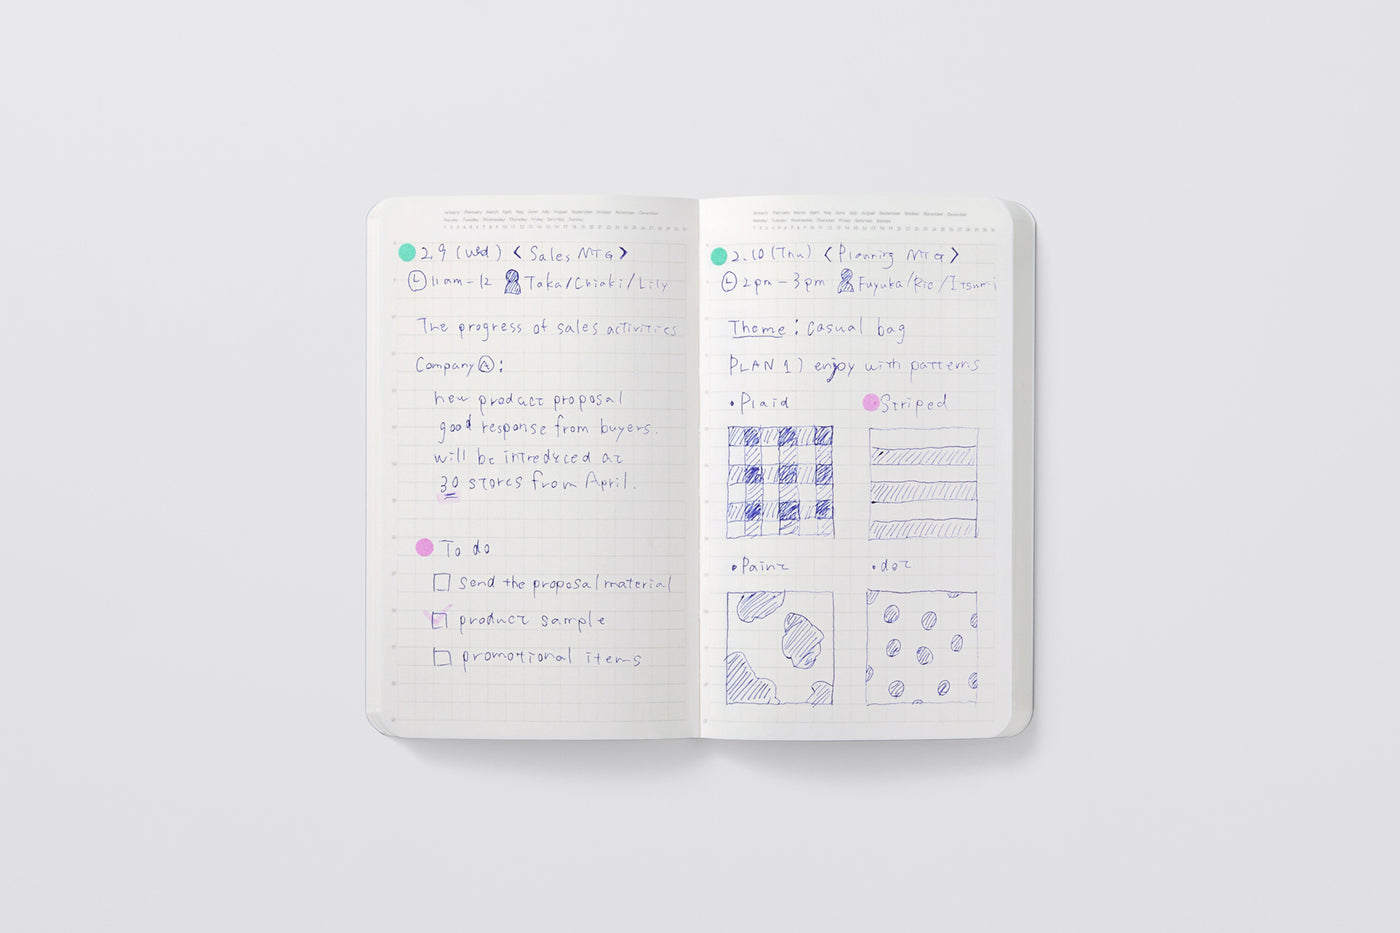 January February March April May June July August September October November December
Monday Tuesday Wednesday Thursday Friday Saturday Sunday
1 2 3 4 5 6 7 8 9 10 11 12 13 14 15 16 17 18 19 20 21 22 23 24 25 26 27 28 29 30 31
2.9 (wed) < Sales MTG >
11am - 12 Taka/Chiaki/Lily
The progress of sales activities
Company Ⓐ:
new product proposal
good response from buyers.
will be introduced at
30 stores from April.
To do
□ send the proposal material
□ product sample
□ promotional items
January February March April May June July August September October November December
Monday Tuesday Wednesday Thursday Friday Saturday Sunday
1 2 3 4 5 6 7 8 9 10 11 12 13 14 15 16 17 18 19 20 21 22 23 24 25 26 27 28 29 30 31
2.10 (Thu) < Planning MTG >
2pm - 3pm Fuyuka/Rie/Itsumi
Theme: casual bag
PLAN 1) enjoy with patterns
• Plaid
Striped
• Paint
• dot